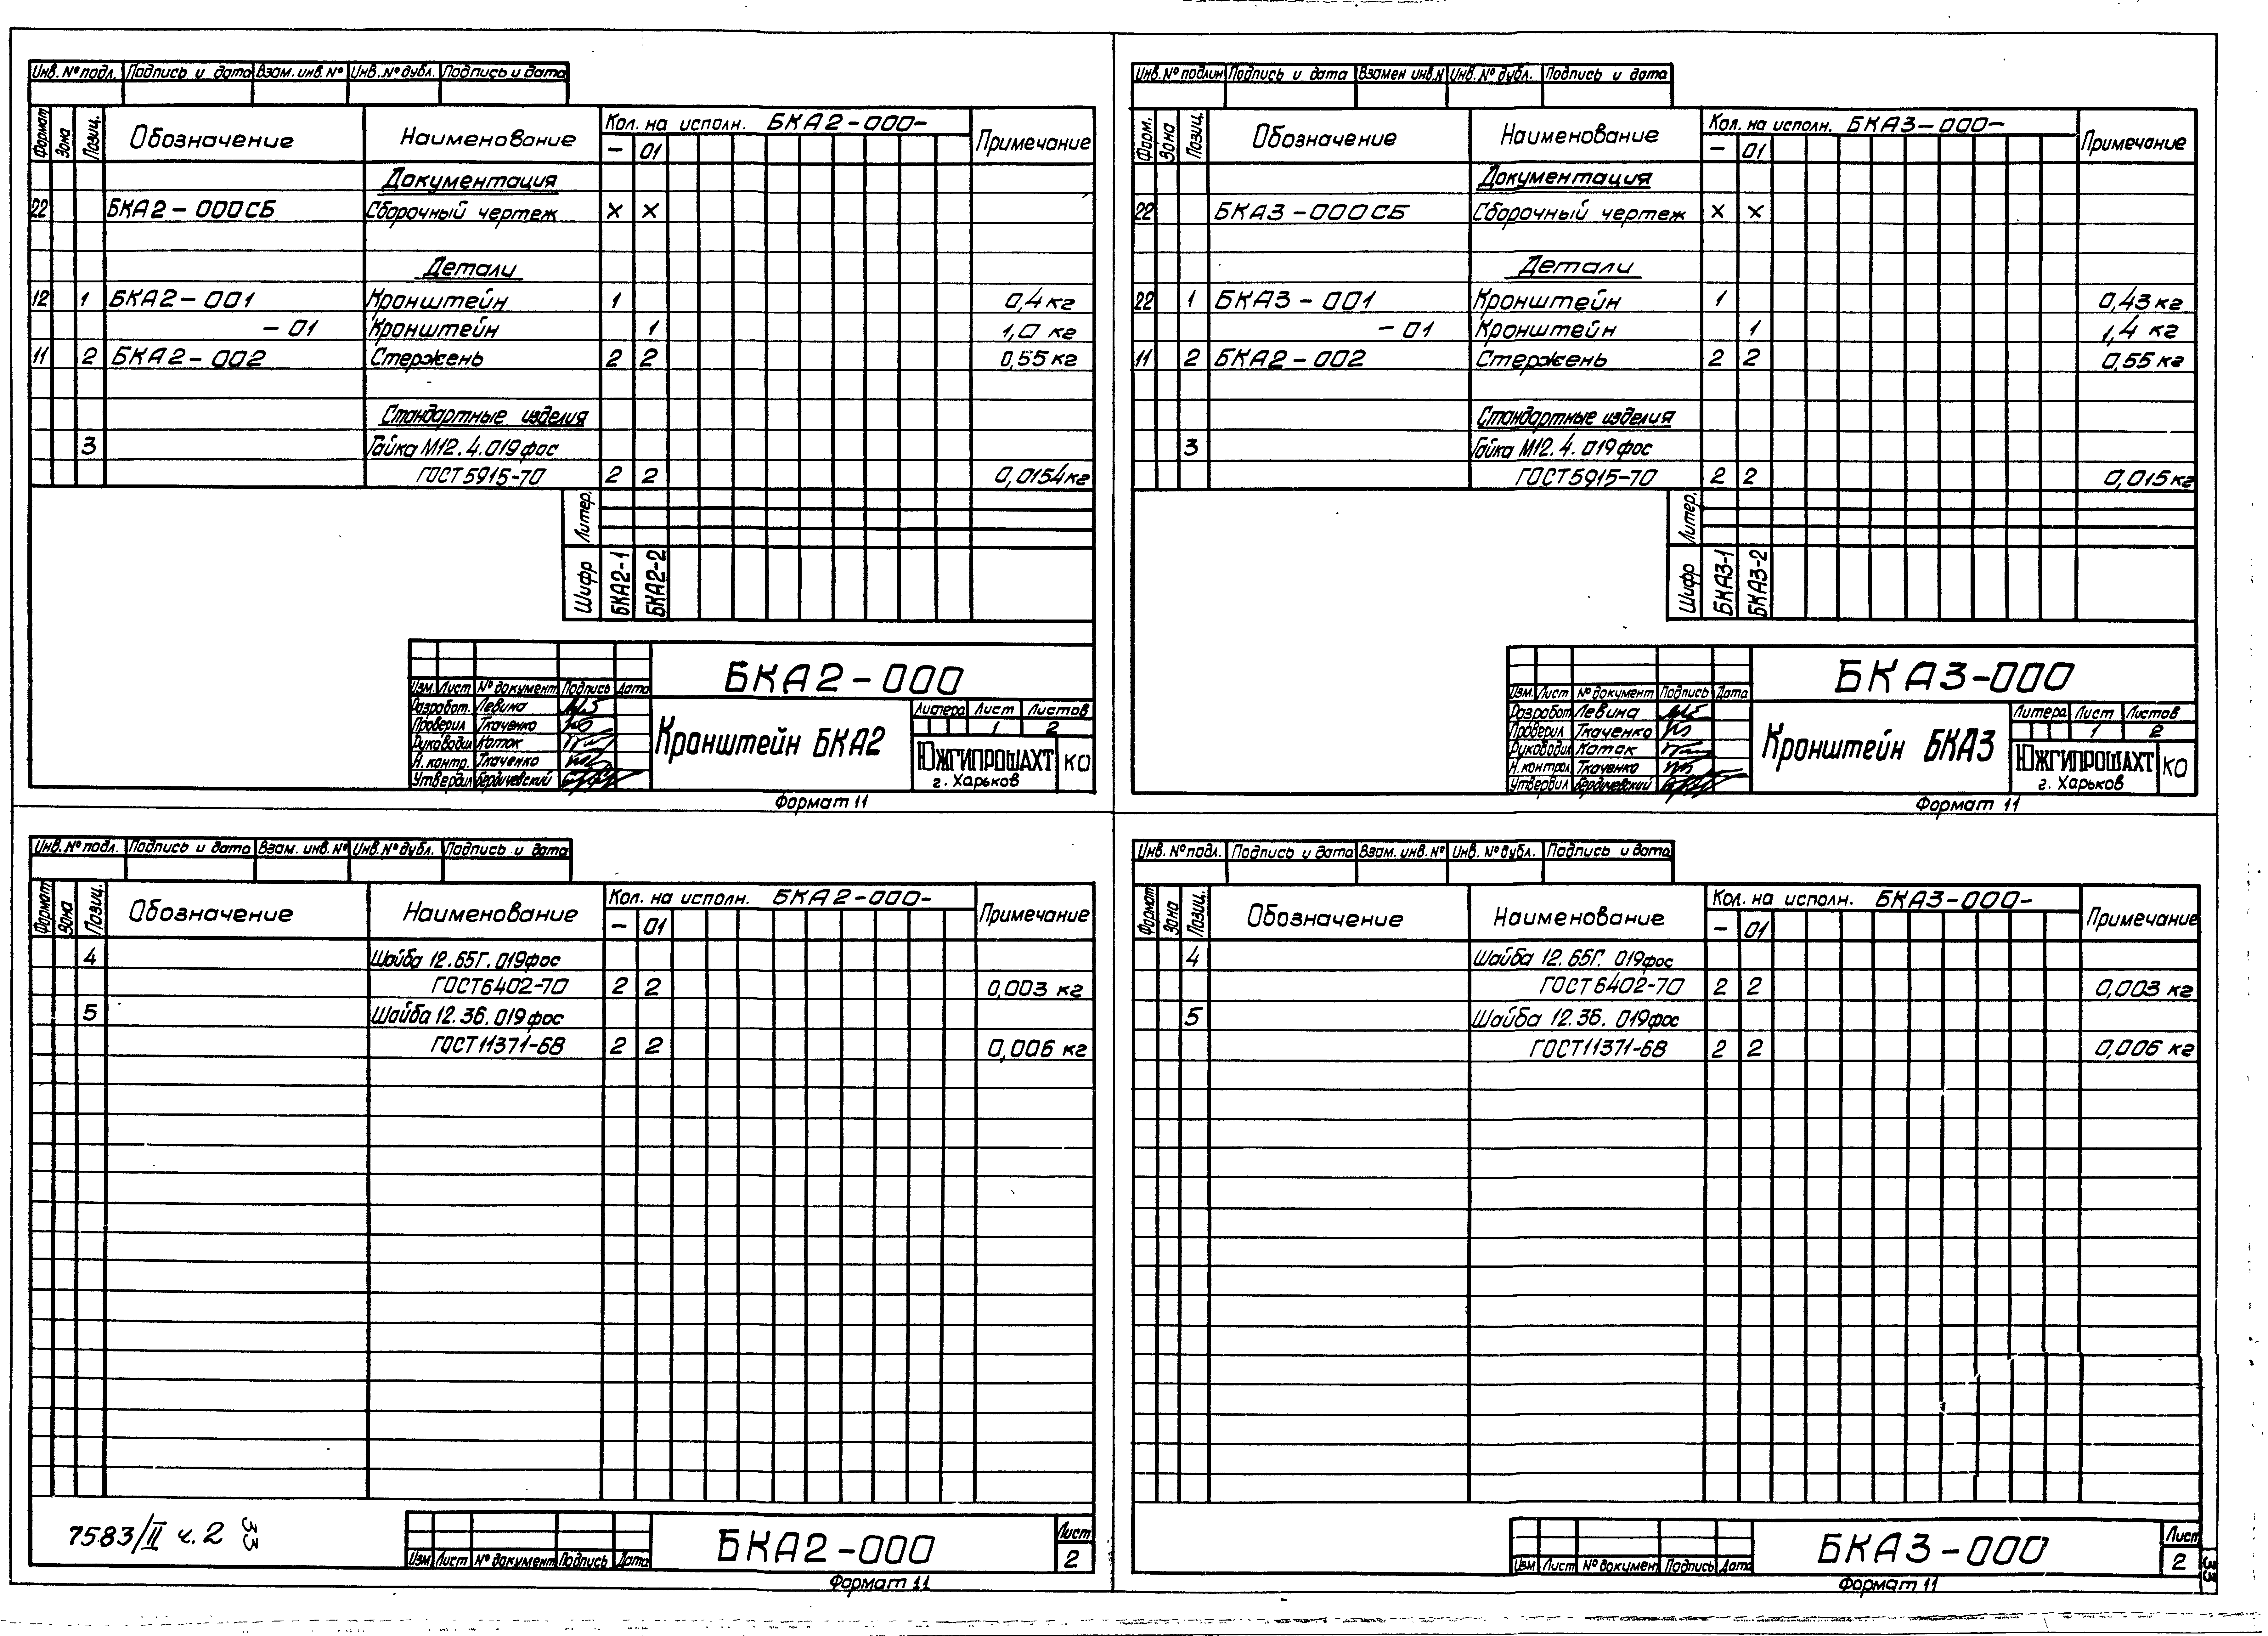 Инв. № подл. Подпись и дата Взам. инв. № Инв. № дубл. Подпись и дата
Формат Зона Позиц. Обозначение Наименование Кол. на исполн. БКА2-000- Примечание
- 01
Документация
22 БКА2-000СБ Сборочный чертеж × ×
Детали
12 1 БКА2-001 Кронштейн 1 0,4 кг
-01 Кронштейн 1 1,0 кг
11 2 БКА2-002 Стержень 2 2 0,55 кг
Стандартные изделия
3 Гайка М12.4.019фос
ГОСТ5915-70 2 2 0,0154кг
Литер.
Шифр БКА2-1 БКА2-2
БКА2-000
Изм. Лист № документ Подпись Дата
Разработ. Левина
Проверил Ткаченко
Руководил Коток
Н. контр. Ткаченко
Утвердил Бердичевский
Кронштейн БКА2
Литера Лист Листов
1 2
ЮЖГИПРОШАХТ КО
г. Харьков
Формат 11
Инв. № подлин Подпись и дата Взамен инв.N Инв. № дубл. Подпись и дата
Форм. Зона Позиц. Обозначение Наименование Кол. на исполн. БКА3-000- Примечание
- 01
Документация
22 БКА3-000СБ Сборочный чертеж × ×
Детали
22 1 БКА3-001 Кронштейн 1 0,43 кг
-01 Кронштейн 1 1,4 кг
11 2 БКА2-002 Стержень 2 2 0,55 кг
Стандартные изделия
3 Гайка М12.4.019фос
ГОСТ5915-70 2 2 0,015кг
Литер.
Шифр БКА3-1 БКА3-2
БКА3-000
Изм. Лист № документ Подпись Дата
Разработ Левина
Проверил Ткаченко
Руководил Коток
Н.контрол. Ткаченко
Утвердил Бердичевский
Кронштейн БКА3
Литера Лист Листов
1 2
ЮЖГИПРОШАХТ КО
г. Харьков
Формат 11
Инв. № подл. Подпись и дата Взам. инв. № Инв. № дубл. Подпись и дата
Формат Зона Позиц. Обозначение Наименование Кол. на исполн. БКА2-000- Примечание
- 01
4 Шайба 12.65Г.019фос
ГОСТ6402-70 2 2 0,003 кг
5 Шайба 12.36.019фос
ГОСТ11371-68 2 2 0,006 кг
7583/II ч.2 33
Изм Лист № документ Подпись Дата
БКА2-000
Лист
2
Формат 11
Инв. № подл. Подпись и дата Взам. инв. № Инв. № дубл. Подпись и дата
Формат Зона Позиц. Обозначение Наименование Кол. на исполн. БКА3-000- Примечание
- 01
4 Шайба 12.65Г.019фос
ГОСТ6402-70 2 2 0,003 кг
5 Шайба 12.36.019фос
ГОСТ11371-68 2 2 0,006 кг
Изм Лист № документ Подпись Дата
БКА3-000
Лист
2
33
Формат 11